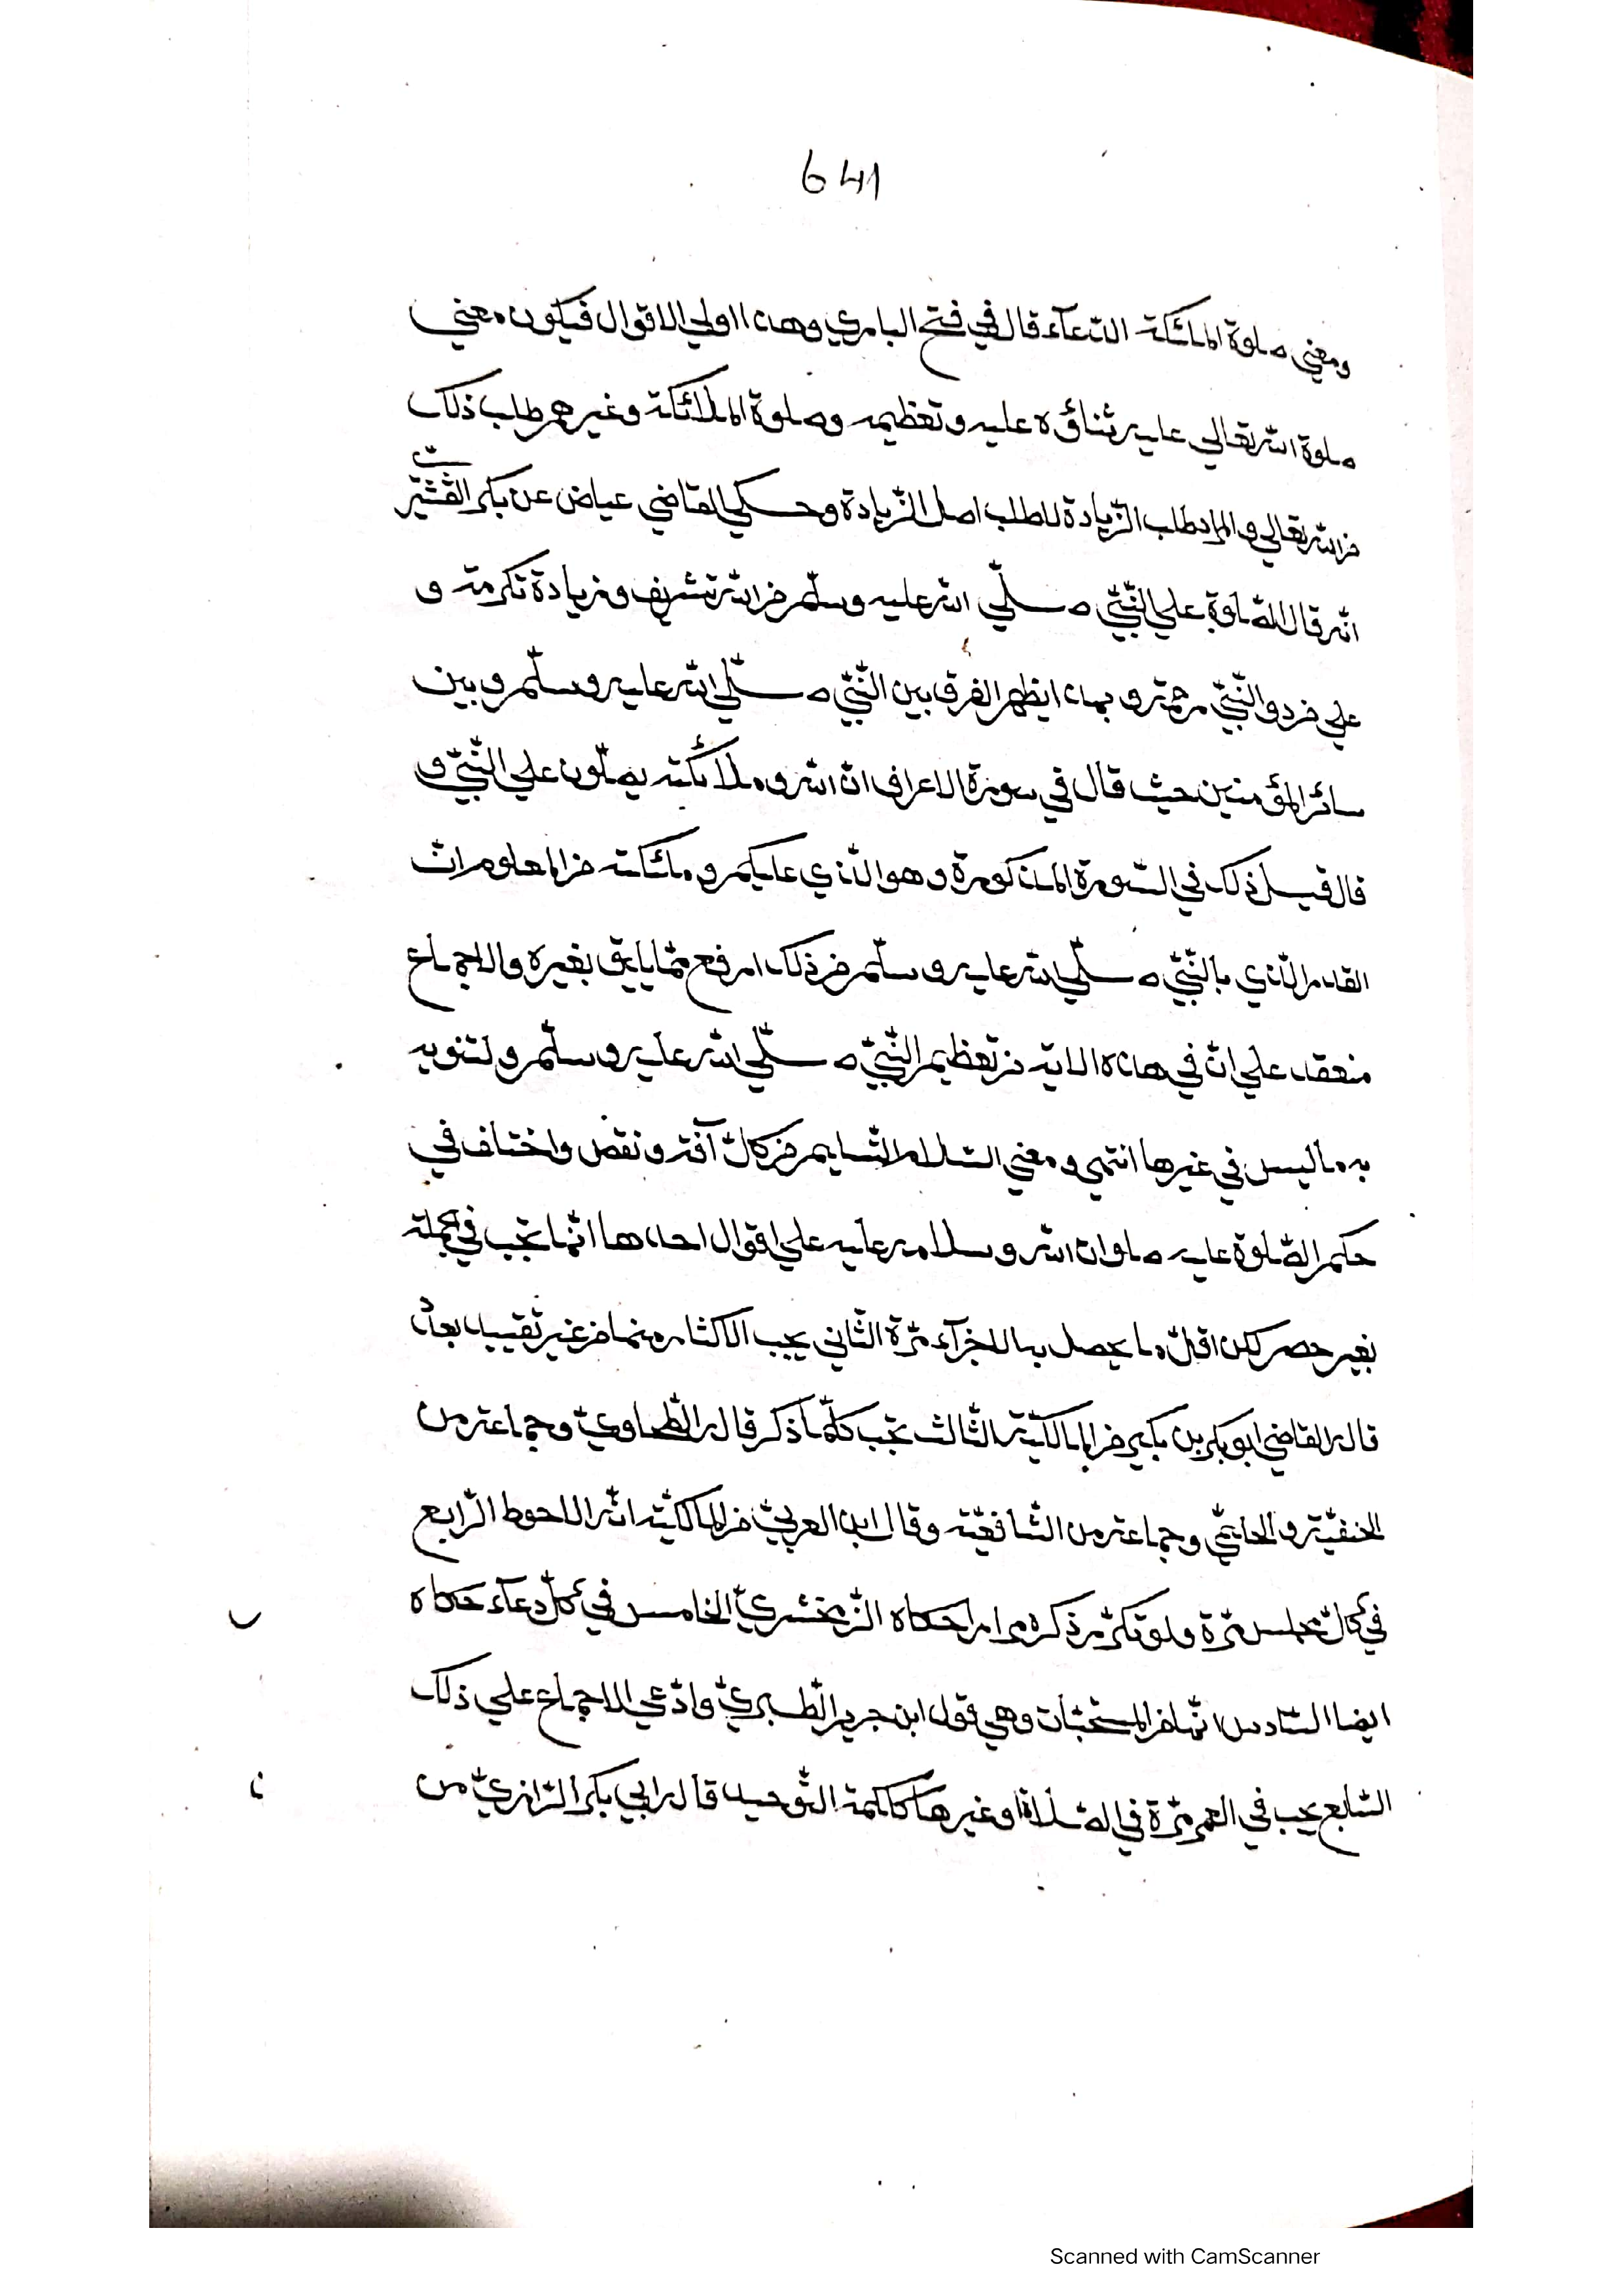 641
ومعني صلوة الملئكة الدعآء قال في فتح الباري وهذا اولي الاقوال فيكون معني
صلوة الله تعالي عليه ثناؤه عليه وتعظيمه وصلوة الملائكة وغيرهم طلب ذلك
من الله تعالي والمراد طلب الزّيادة لا طلب اصل الزّيادة وحكي القاضي عياض عن بكر القشيرّي
انّه قال الصّلوة علي النّبيّ صلّي الله عليه وسلّم من الله تشريف وزيادة تكرمة و
علي من دون النّبيّ رحمة وبهذا يظهر الفرق بين النّبيّ صلّي الله عليه وسلّم وبين
سائر المؤمنين حيث قال في سورة الاعراف انّ الله وملائكته يصلّون علي النّبيّ و
قال قبل ذلك في السّورة المذكورة وهو الّذي عليكم وملئكته من المعلوم انّ
القدر الّذي بالنّبيّ صلّي الله عليه وسلّم من ذلك ارفع ممّا يليق بغيره والاجماع
منعقد علي انّ في هذه الاية من تعظيم النّبيّ صلّي الله عليه وسلّم ولتنويه
به ما ليس في غيرها انتهي ومعني السّلام التّسليم من كلّ آفة ونقص واختلف في
حكم الصّلوة عليه صلوات الله وسلامه عليه علي اقوال احدها انّما تجب في الجملة
بغير حصر لكن اقلّ ما يحصل به الاجزآء مرّة الثّاني يجب الاكثار منها من غير تقييد بعدد
قاله القاضي ابو بكر بن بكير من المالكيّة الثّالث تجب كلّما ذكر قاله الطّحاويّ وجماعة من
الحنفيّة والحليميّ وجماعة من الشّافعيّة وقال ابن العربيّ من المالكيّة انّه الاحوط الرّابع
في كلّ مجلس مرّة ولو تكرّر ذكره مرارا حكاه الزّمخشريّ الخامس في كلّ دعآء حكاه
ايضا السّادس انّها من المستحبّات وهي قول ابن جرير الطّبريّ وادّعي الاجماع علي ذلك
السّابع يجب في العمر مرّة في الصّلاة او غيرها ككلمة التّوحيد قاله ابي بكر الرّازيّ من
Scanned with CamScanner